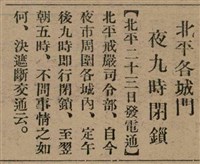 北平各城門
夜九時閉鎖
【北平二十三日發電通】
北平戒嚴司令部、自今
夜市周圍各城內、定午
後九時即行閉鎖、至翌
朝五時、不問事情之如
何、決遮斷交通云。